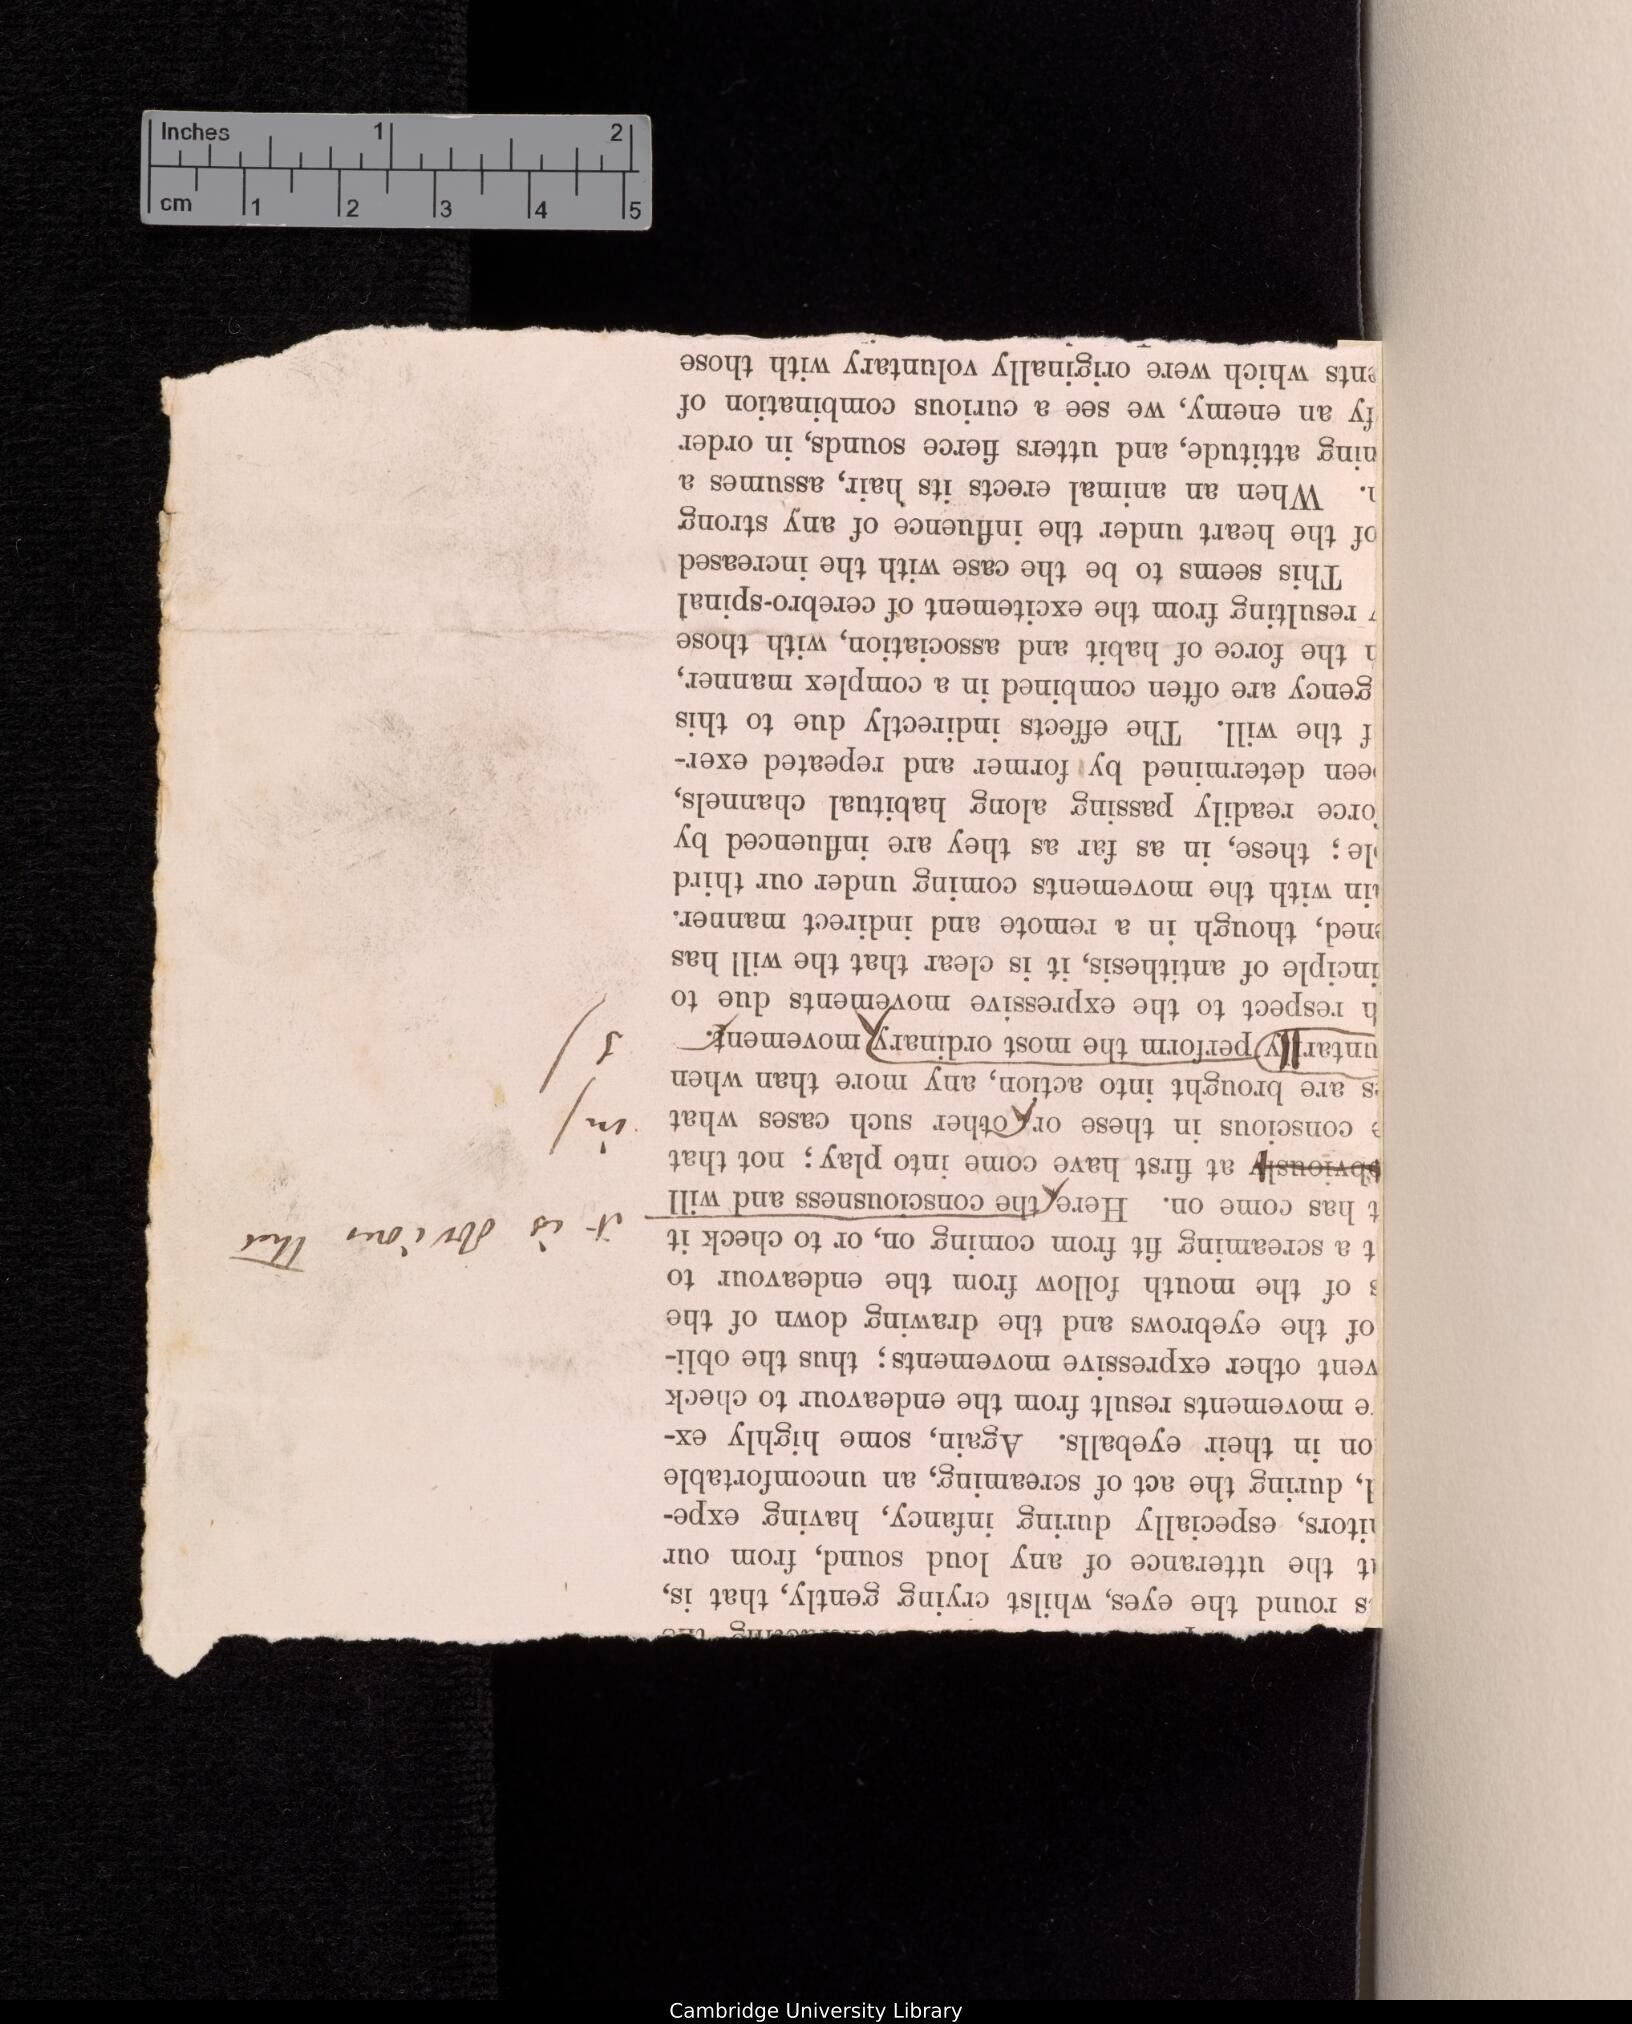 Inches 1 2
cm 1 2 3 4 5
s round the eyes, whilst crying gently, that is,
t the utterance of any loud sound, from our
itors, especially during infancy, having expe-
l, during the act of screaming, an uncomfortable
on in their eyeballs. Again, some highly ex-
e movements result from the endeavour to check
vent other expressive movements; thus the obli-
of the eyebrows and the drawing down of the
s of the mouth follow from the endeavour to
t a screaming fit from coming on, or to check it
t has come on. Here the consciousness and will it is obvious that
obviously at first have come into play; not that
e conscious in these or other such cases what in/
s are brought into action, any more than when
untarily perform the most ordinary movement. s/
h respect to the expressive movements due to
inciple of antithesis, it is clear that the will has
ened, though in a remote and indirect manner.
in with the movements coming under our third
le; these, in as far as they are influenced by
orce readily passing along habitual channels,
een determined by former and repeated exer-
f the will. The effects indirectly due to this
gency are often combined in a complex manner,
h the force of habit and association, with those
y resulting from the excitement of cerebro-spinal
This seems to be the case with the increased
of the heart under the influence of any strong
n. When an animal erects its hair, assumes a
ning attitude, and utters fierce sounds, in order
fy an enemy, we see a curious combination of
ents which were originally voluntary with those
Cambridge University Library